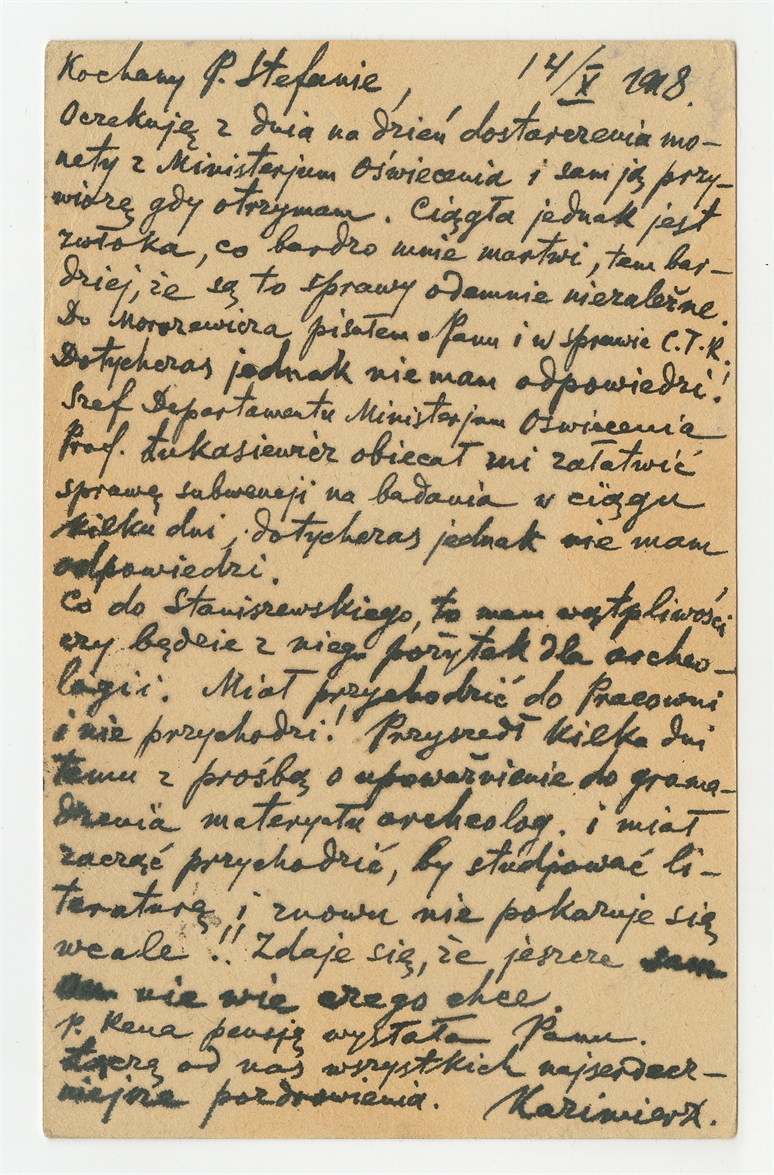 Kochany P. Stefanie, 14/X 1918.
Oczekuję z dnia na dzień dostarczenia mo-
nety z Ministerjum Oświecenia i sam ją przy-
wiozę gdy otrzymam. Ciągła jednak jest
zwłoka, co bardzo mnie martwi, tem bar-
dziej, że są to sprawy odemnie niezależne.
Do Morozewicza pisałem o Panu i w sprawie C.T.R.
Dotychczas jednak nie mam odpowiedzi!
Szef Departamentu Ministerjum Oświecenia
Prof. Łukasiewicz obiecał mi załatwić
sprawę subwencji na badania w ciągu
kilku dni, dotychczas jednak nie mam
odpowiedzi.
Co do Staniszewskiego, to mam wątpliwości
czy będzie z niego pożytek dla archeo-
logii. Miał przychodzić do Pracowni
i nie przychodzi! Przyszedł kilka dni
temu z prośbą o upoważnienie do groma-
dzenia materyału archeolog. i miał
zacząć przychodzić, by studjować li-
teraturę i znowu nie pokazuje się
wcale!! Zdaje się, że jeszcze sam
on nie wie czego chce.
P. Rena pensją wysłała Panu.
Łączę od nas wszystkich najserdecz-
niejsze pozdrowienia. Kazimierz.